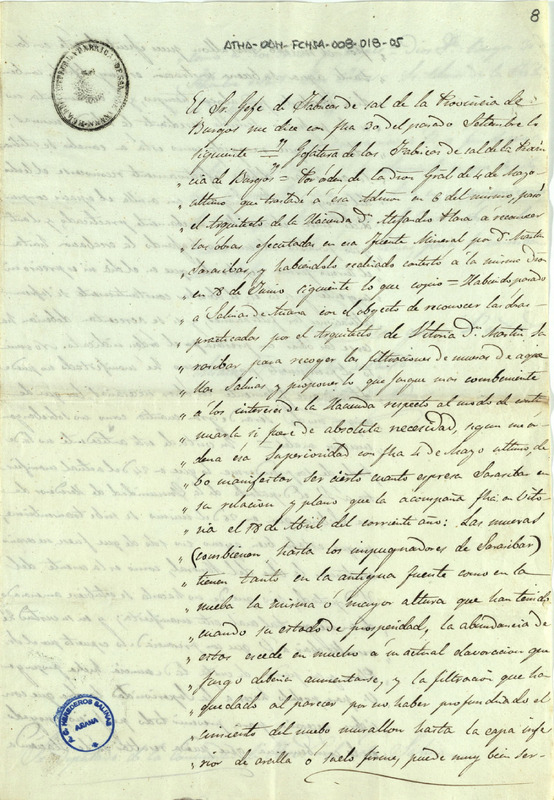 8
ATHA-DAH-FCHSA-008-018-05
El Sr. Jefe de Fabricas de sal de la Provincia de
Burgos me dice con fha 30 del pasado Setiembre lo
siguiente = "Jefatura de las Fabricas de sal de la Provin
" cia de Burgos = Por orden de la Dion Gral de 4 de Mayo
" ultimo que traslade a esa Admon en 6 del mismo, pasó
" el arquitecto de la Hacienda Dn Alejandro a reconocer
" las obras ejecutadas en esa fuente Mineral por Dn Martin
" Saraibar, y habiendolo realizado contestó a la misma Dion
" en 18 de Junio siguiente lo que copio = Habiendo pasado
" a Salinas de Anana con el objecto de reconocer las obras
" practicadas por el Arquitecto de Vitoria Dn Martin Sa
" raibar para recoger las filtraciones de mueras de aque
" llas Salinas y proponer lo que juzgue mas combeniente
" a los intereses de la Hacienda respecto al modo de conti
" nuarla si fuere de absoluta necesidad, segun me or
" dena esa Superioridad con fha 4 de Mayo ultimo, de
" bo manifestar ser cierto cuanto espresa Saraibar en
" su relacion y plano que la acompaña fha en Vito
" ria el 18 de Abril del corriente año: Las mueras
" (combienen hasta los impugnadores de Saraibar)
" tienen tanto en la antigua fuente como en la
" nueba la misma ó mayor altura que han tenido
" cuando su estado de prosperidad, la abundancia de
" estas escede en mucho a su actual elavoracion que
" juzgo deberia aumentarse, y la filtracion que ha
" quedado al parecer por no haber profundizado el
" cimiento del nuebo murallon hasta la capa infe
" rior de arcilla o suelo firme, puede muy bien ser-
C. HEREDEROS SALINAS
AÑANA